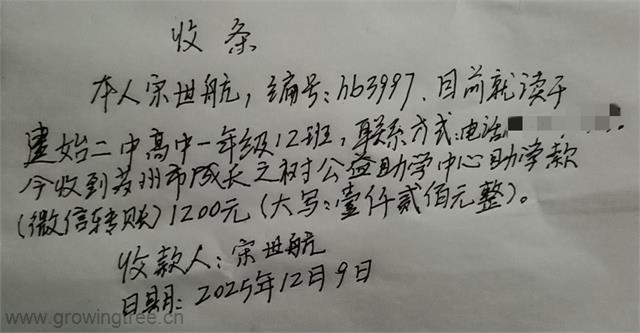 收条
本人宋世航，编号：hb3997．目前就读于
建始二中高中一年级12班，联系方式：电话
今收到苏州市成长之树公益助学中心助学款
(微信转账)1200元(大写：壹仟贰佰元整)。
收款人：宋世航
日期：2025年12月9日
www.growingtree.cn